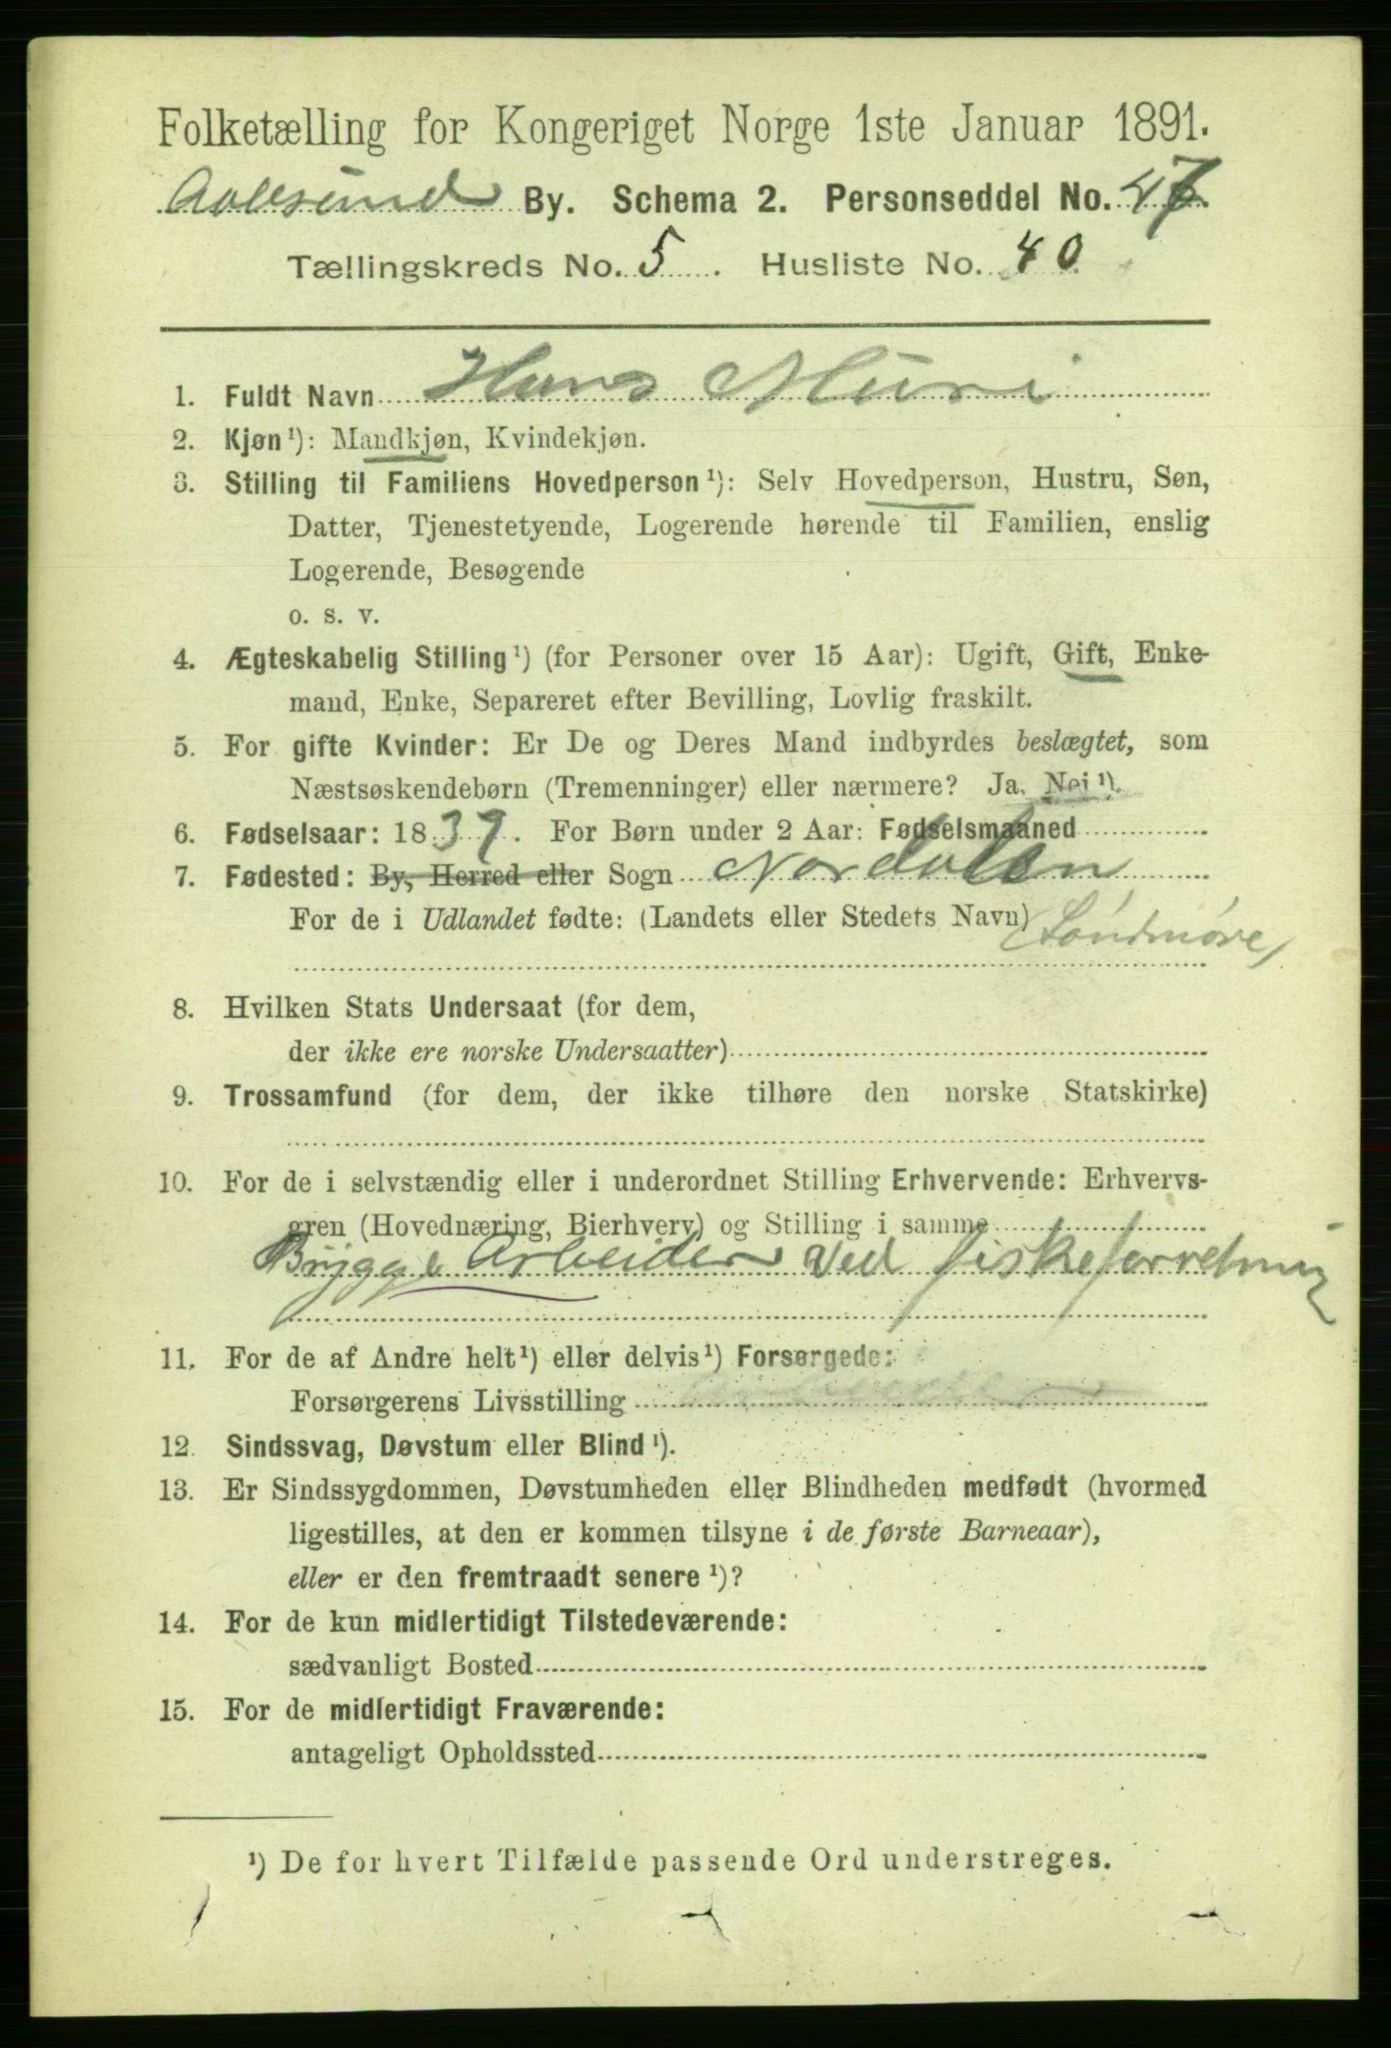 Folketælling for Kongeriget Norge 1ste Januar 1891.
Aalesund By. Schema 2. Personseddel No. 47
Tællingskreds No. 5. Husliste No. 40
1. Fuldt Navn Hans Muri
2. Kjøn¹): Mandkjøn, Kvindekjøn.
3. Stilling til Familiens Hovedperson¹): Selv Hovedperson, Hustru, Søn,
Datter, Tjenestetyende, Logerende hørende til Familien, enslig
Logerende, Besøgende
o. s. v.
4. Ægteskabelig Stilling¹) (for Personer over 15 Aar): Ugift, Gift, Enke-
mand, Enke, Separeret efter Bevilling, Lovlig fraskilt.
5. For gifte Kvinder: Er De og Deres Mand indbyrdes beslægtet, som
Næstsøskendebørn (Tremenninger) eller nærmere? Ja. Nei¹).
6. Fødselsaar: 1839. For Børn under 2 Aar: Fødselsmaaned
7. Fødested: By, Herred eller Sogn Nordalen
For de i Udlandet fødte: (Landets eller Stedets Navn)
(Søndmøre)
8. Hvilken Stats Undersaat (for dem,
der ikke ere norske Undersaatter)
9. Trossamfund (for dem, der ikke tilhøre den norske Statskirke)
10. For de i selvstændig eller i underordnet Stilling Erhvervende: Erhvervs-
gren (Hovednæring, Bierhverv) og Stilling i samme
Brygge Arbeider ved fiskeforretning
11. For de af Andre helt¹) eller delvis¹) Forsørgede:
Forsørgerens Livsstilling
12. Sindssvag, Døvstum eller Blind¹).
13. Er Sindssygdommen, Døvstumheden eller Blindheden medfødt (hvormed
ligestilles, at den er kommen tilsyne i de første Barneaar),
eller er den fremtraadt senere¹)?
14. For de kun midlertidigt Tilstedeværende:
sædvanligt Bosted
15. For de midlertidigt Fraværende:
antageligt Opholdssted
¹) De for hvert Tilfælde passende Ord understreges.